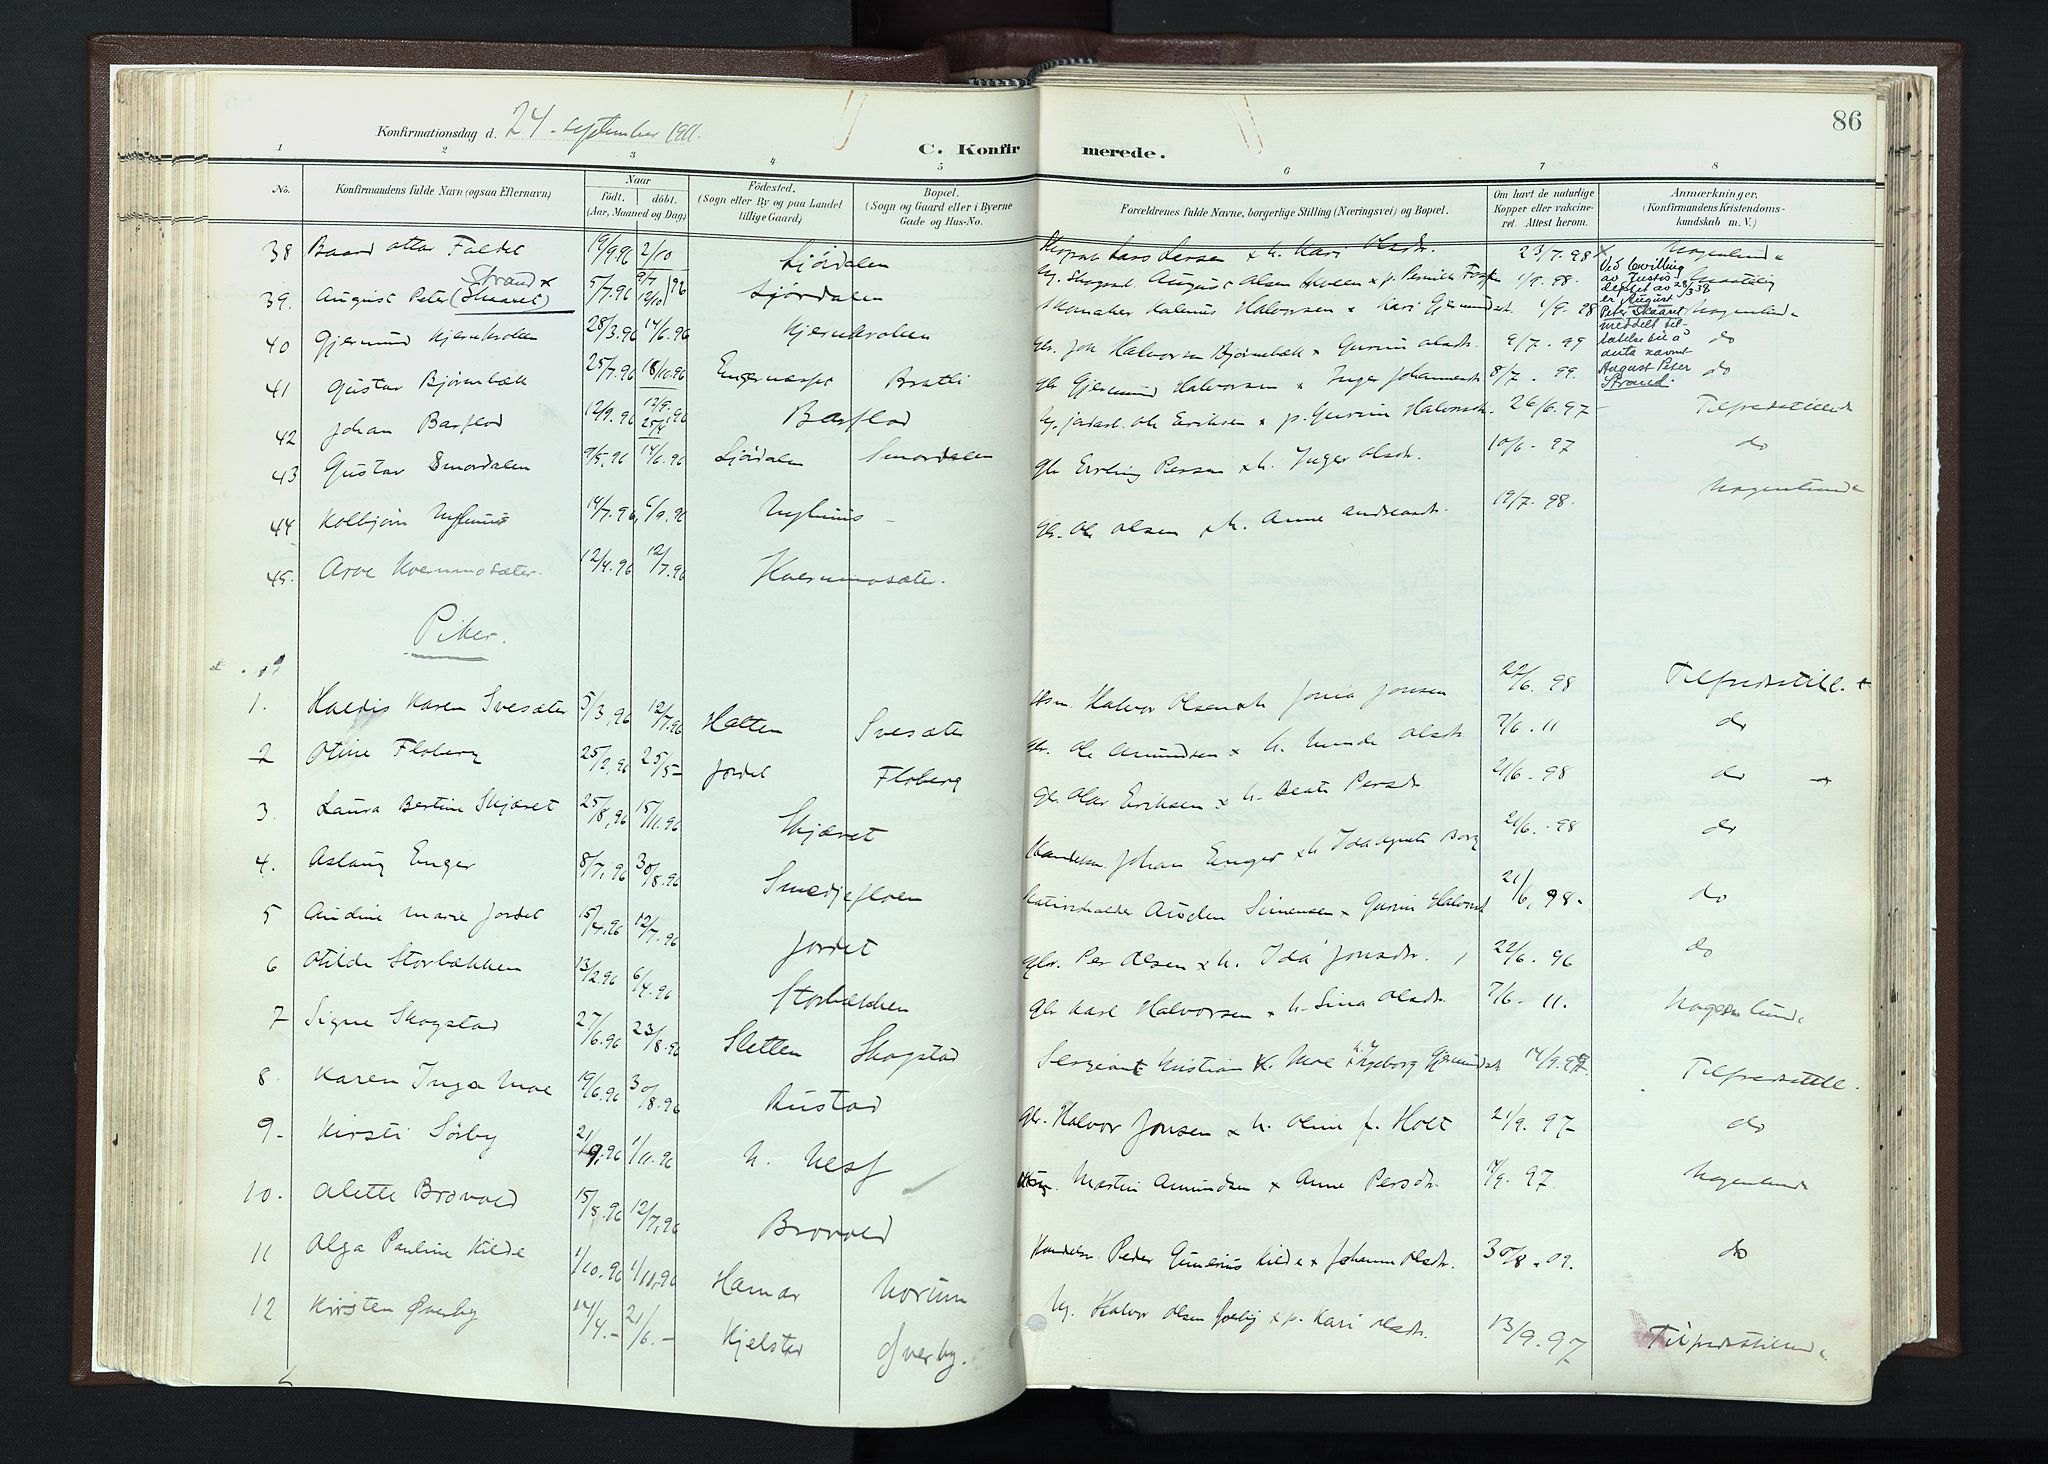 86
Konfirmationsdag d. 24. september 1911.
C. Konfirmerede.
1 2 3 4 5 6 7 8
No.
Konfirmandens fulde Navn (ogsaa Efternavn)
Naar
födt. döbt.
(Aar, Maaned og Dag)
Födested.
(Sogn eller By og paa Landet
tillige Gaard)
Bopæl.
(Sogn og Gaard eller i Byerne
Gade og Hus-No.
Forældrenes fulde Navne, borgerlige Stilling (Næringsvei) og Bopæl.
Om havt de naturlige
Kopper eller vakcine-
ret. Attest herom.
Anmærkninger,
(Konfirmandens Kristendoms-
kundskab m. V.)
38 Baard Ottar Faldet 19/9.96 2/10 Ljördalen Lars Larsen x h. Kari Olsdtr. 23/7.98 Nogenlunde
Strand x
39. August Peter (Skaaret) 5/7.96 9/7 12/10 96 Ljördalen August Olsen x p. Pernille 1/9.98.
Ved bevilling
av Justis-
deptet av 28/3 38
er August
Peter Skaaret
meddelt til-
latelse til å
anta navnet
August Peter
Strand.
40 Gjermund Kjernkrollen 28/3.96 14/6.96 Kjernkrollen Skomaker Halvorsen x Kari Gjermundsdt. 1/9.98 Nogenlunde
41 Gustav Bjørnbæk 25/7.96 18/10.96 Engerneset Bratli Gbr. Jon Halvorsen Bjørnbæk x Gunni Olsdtr. 9/7.99 do
42 Johan Barflod 12/9.96 12/9.96 Barflod Gbr Gjermund Halvorsen x Inger Johannesdt 8/7.99. do
43 Gustav Smordalen 9/5.96 14/6.96 Ljördalen Smordalen Ole Eriksen x p. Gunni Halvorsdt. 26/6.97- Tilfredstillend
44 Kolbjørn Nyhuus 14/7.96 6/9.96 Nyhuus Gbr Erling Persen x h. Inger Olsdtr. 10/6-97 do
45. Arve Kvernmosæter. 12/4.96 12/7.96 Kvernmosæter. Gbr. Ole Olsen x h. Anne Andreasdt. 19/7.98. Nogenlunde
Piker.
1. Haldis Karen Svesæter 5/3.96 12/7.96 Hætten Svesæter Halvor Olsen x h. Jonia Jonsen 22/6.98 Tilfredstill.
2 Oline Floberg 25/2.96 25/5- Jordet Floberg Gbr. Ole Amundsen x h. Olsdtr 7/6.11 do
3. Laura Bertine Skjæret 25/8.96 15/11.96 Skjæret Gbr. Olav Eriksen x h. Beate Persdtr 21/6-98 do
4. Aslaug Enger 8/7.96 30/8.96 Smedjefloen Handelsm. Johan Enger x h. Ida Agnete Borg 21/6.-98 do
5 Audine Marie Jordet 15/4.96 12/7.96 Jordet Auden Simensen x Gunni Halvorsdt 21/6.98- do
6 Otilde Storbækken 13/2.96 6/4.96 Storbækken Gbr. Per Olsen x h. Ida Jonsdtr. 22/6-96 do
7 Signe Skogstad 27/6.96 23/8.96 Sletten Skogstad Gbr Karl Halvorsen x h. Sina Olsdtr 7/6-11. Nogenlunde
8. Karen Inga Moe 19/6.96 30/8.96 Rustad Sergeant Kristian K. Moe x Ingeborg Gjermundsdt 14/9.97. Tilfredstill.
9- Kirsti Sörby 21/9.96 1/11.96 N. Nesf Gbr. Halvor Jonsen x h. Oline f. Holt 21/9.97- do
10. Alette Brovold 15/5.96 12/7.96 Brovold Martin Amundsen x Anne Persdtr. 14/9.97. Nogenlunde
11 Olga Pauline Kilde 1/10.96 1/11.96 Hamar Norum Handelsm. Peder Gunerius Kilde x Johanne Olsdtr. 30/8.09. do
12 Kirsten Øverby 14/4.- 21/6.- Kjelstad Øverby. Halvor Olsen Øverby x p. Kari Olsdtr. 13/9.97 Tilfredstillende